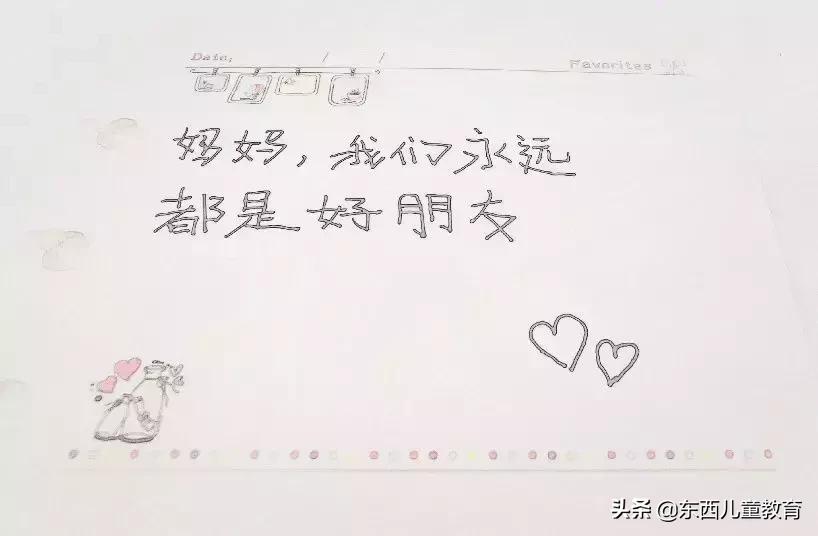 Date:         /         /
Favorites
妈妈，我们永远
都是好朋友
头条 @东西儿童教育